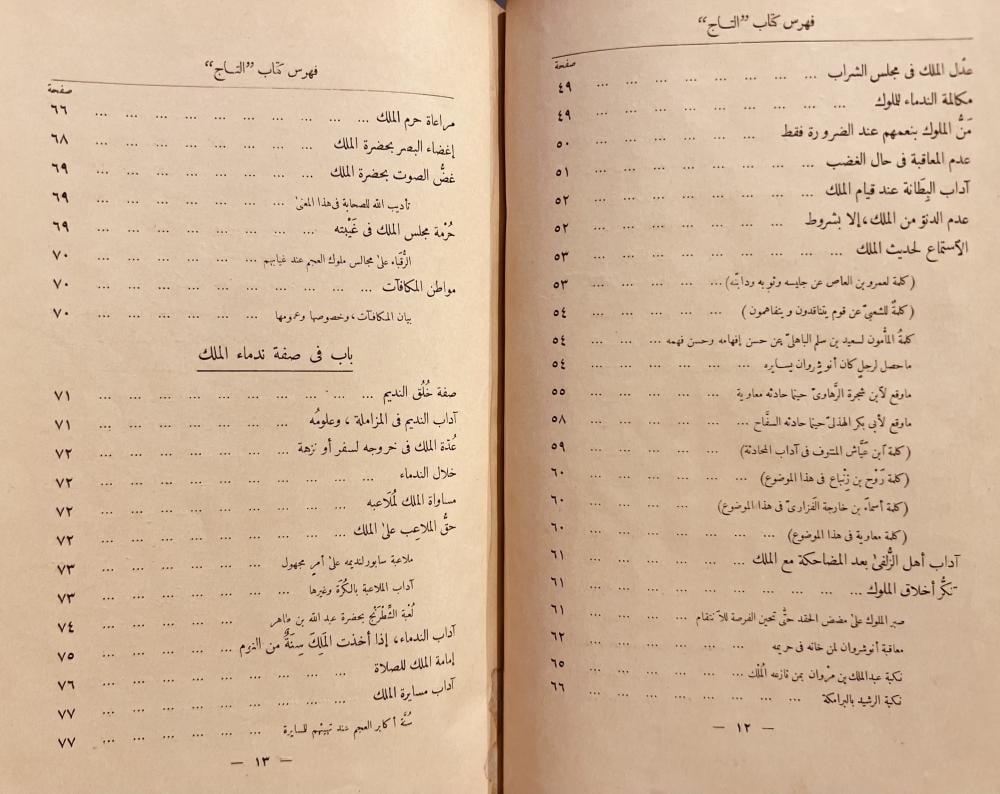 فهرس كتاب "التاج"
صفحة
عدل الملك فى مجلس الشراب ... ٤٩
مكالمة الندماء للملوك ... ٤٩
مَنُّ الملوك بنعمهم عند الضرورة فقط ... ٥٠
عدم المعاقبة فى حال الغضب ... ٥١
آداب البِطَانة عند قيام الملك ... ٥٢
عدم الدنوّ من الملك، إلا بشروط ... ٥٢
الاستماع لحديث الملك ... ٥٣
(كلمة لعمرو بن العاص عن جليسه وثوبه ودابّته) ... ٥٣
(كلمةٌ للشعبىّ عن قوم يتناقدون و يتفاهمون) ... ٥٤
كلمةُ المأمون لسعيد بن سلم الباهلىّ عن حسن إفهامه وحسن فهمه ... ٥٤
ماحصل لرجل كان أنوشروان يسايره ... ٥٤
ماوقع لآبن شجرة الرَّهاوىّ حينما حادثه معاوية ... ٥٥
ماوقع لأبى بكر الهذلىّ حينما حادثه السفَّاح ... ٥٨
(كلمة آبن عيَّاش المنتوف فى آداب المحادثة) ... ٥٩
(كلمة رَوْح بن زِنْباع فى هذا الموضوع) ... ٦٠
(كلمة أسماء بن خارجة الفَزارىّ فى هذا الموضوع) ... ٦٠
(كلمة معاوية فى هذا الموضوع) ... ٦٠
آداب أهل الزُّلفىٰ بعد المضاحكة مع الملك ... ٦١
تنكُّر أخلاق الملوك ... ٦١
صبر الملوك علىٰ مضض الحقد حتَّى تحين الفرصة للآنتقام ... ٦١
معاقبة أنوشروان لمن خانه فى حريمه ... ٦٢
نكبة عبد الملك بن مرْوان بمن نازعه المُلْك ... ٦٥
نكبة الرشيد بالبرامكة ... ٦٦
— ١٢ —
فهرس كتاب "التاج"
صفحة
مراعاة حرم الملك ... ٦٦
إغضاء البصر بحضرة الملك ... ٦٨
غضُّ الصوت بحضرة الملك ... ٦٩
تأديب الله للصحابة فى هذا المعنىٰ ... ٦٩
حُرْمة مجلس الملك فى غَيْبته ... ٦٩
الرُّقباء علىٰ مجالس ملوك العجم عند غيابهم ... ٧٠
مواطن المكافآت ... ٧٠
بيان المكافآت، وخصوصها وعمومها ... ٧٠
باب فى صفة ندماء الملك
صفة خُلُق النديم ... ٧١
آداب النديم فى المزاملة، وعلومُه ... ٧١
عُدّة الملك فى خروجه لسفر أو نزهة ... ٧٢
خلال الندماء ... ٧٢
مساواة الملك لمُلَاعبه ... ٧٢
حقُّ الملاعِب علىٰ الملك ... ٧٢
ملاعبة سابور لنديمه علىٰ أمرٍ مجهول ... ٧٣
آداب الملاعبة بالكُرَة وغيرها ... ٧٣
لُعْبة الشِّطْرَنْج بحضرة عبد الله بن طاهر ... ٧٤
آداب الندماء، إذا أخذت المَلِكَ سِنَةٌ من النوم ... ٧٥
إمامة الملك للصلاة ... ٧٦
آداب مسايرة الملك ... ٧٧
سُنَّة أكابر العجم عند تهيّئهم للسايرة ... ٧٧
— ١٣ —